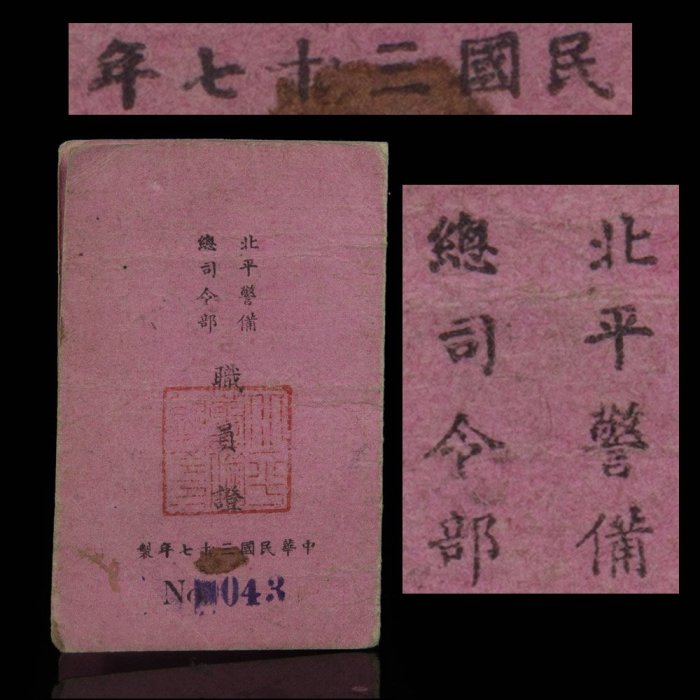 民國三十七年
北平警備
總司令部
職員證
中華民國三十七年製
No 043
北平警備
總司令部